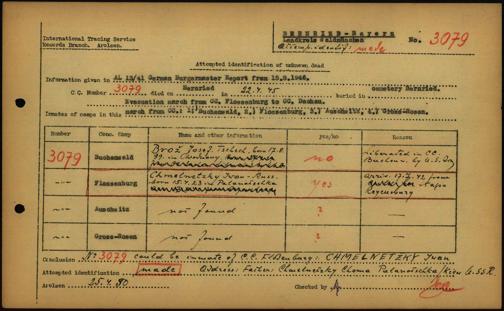 International Tracing Service
Records Branch. Arolsen.
BERNRIED-Bayern
Landkreis Waldmünchen
Attemp. identif.: made
No. 3079
Attempted identification of unknown dead
Information given in AL 13/41 German Burgermaster Report from 18.8.1946.
C.C. Number 3079 died on Bernried in 22.4.45 buried in cemetery Bernried.
Evacuation march from CC. Flossenburg to CC. Dachau.
Inmates of camps in this march from CC.: Buchenwald, 2,) Flossenburg, 3,) Auschwitz, 4,) Gross-Rosen.
Number
Conc. Camp
Name and other information
yes/no
Reason
3079
Buchenwald
Brož Josef, Tschech. born 17.8.
no
liberated in CC.
Buchenw. by U.S.
-"-
Flossenburg
Chmelnetzky Iwan - Russ.
born 15.4.23 in Palanotschka
yes
arriv. 17.
Regensburg
-"-
Auschwitz
not found
?
-"-
Gross-Rosen
not found
?
Conclusion No 3079 could be inmate of C.C. Floßenburg: CHMELNETZKY Iwan
Attempted identification made Address: Father: Chmelnetzky Choma Palanotschka/Kiew U.S.S.R.
Arolsen 25.4.50
Checked by